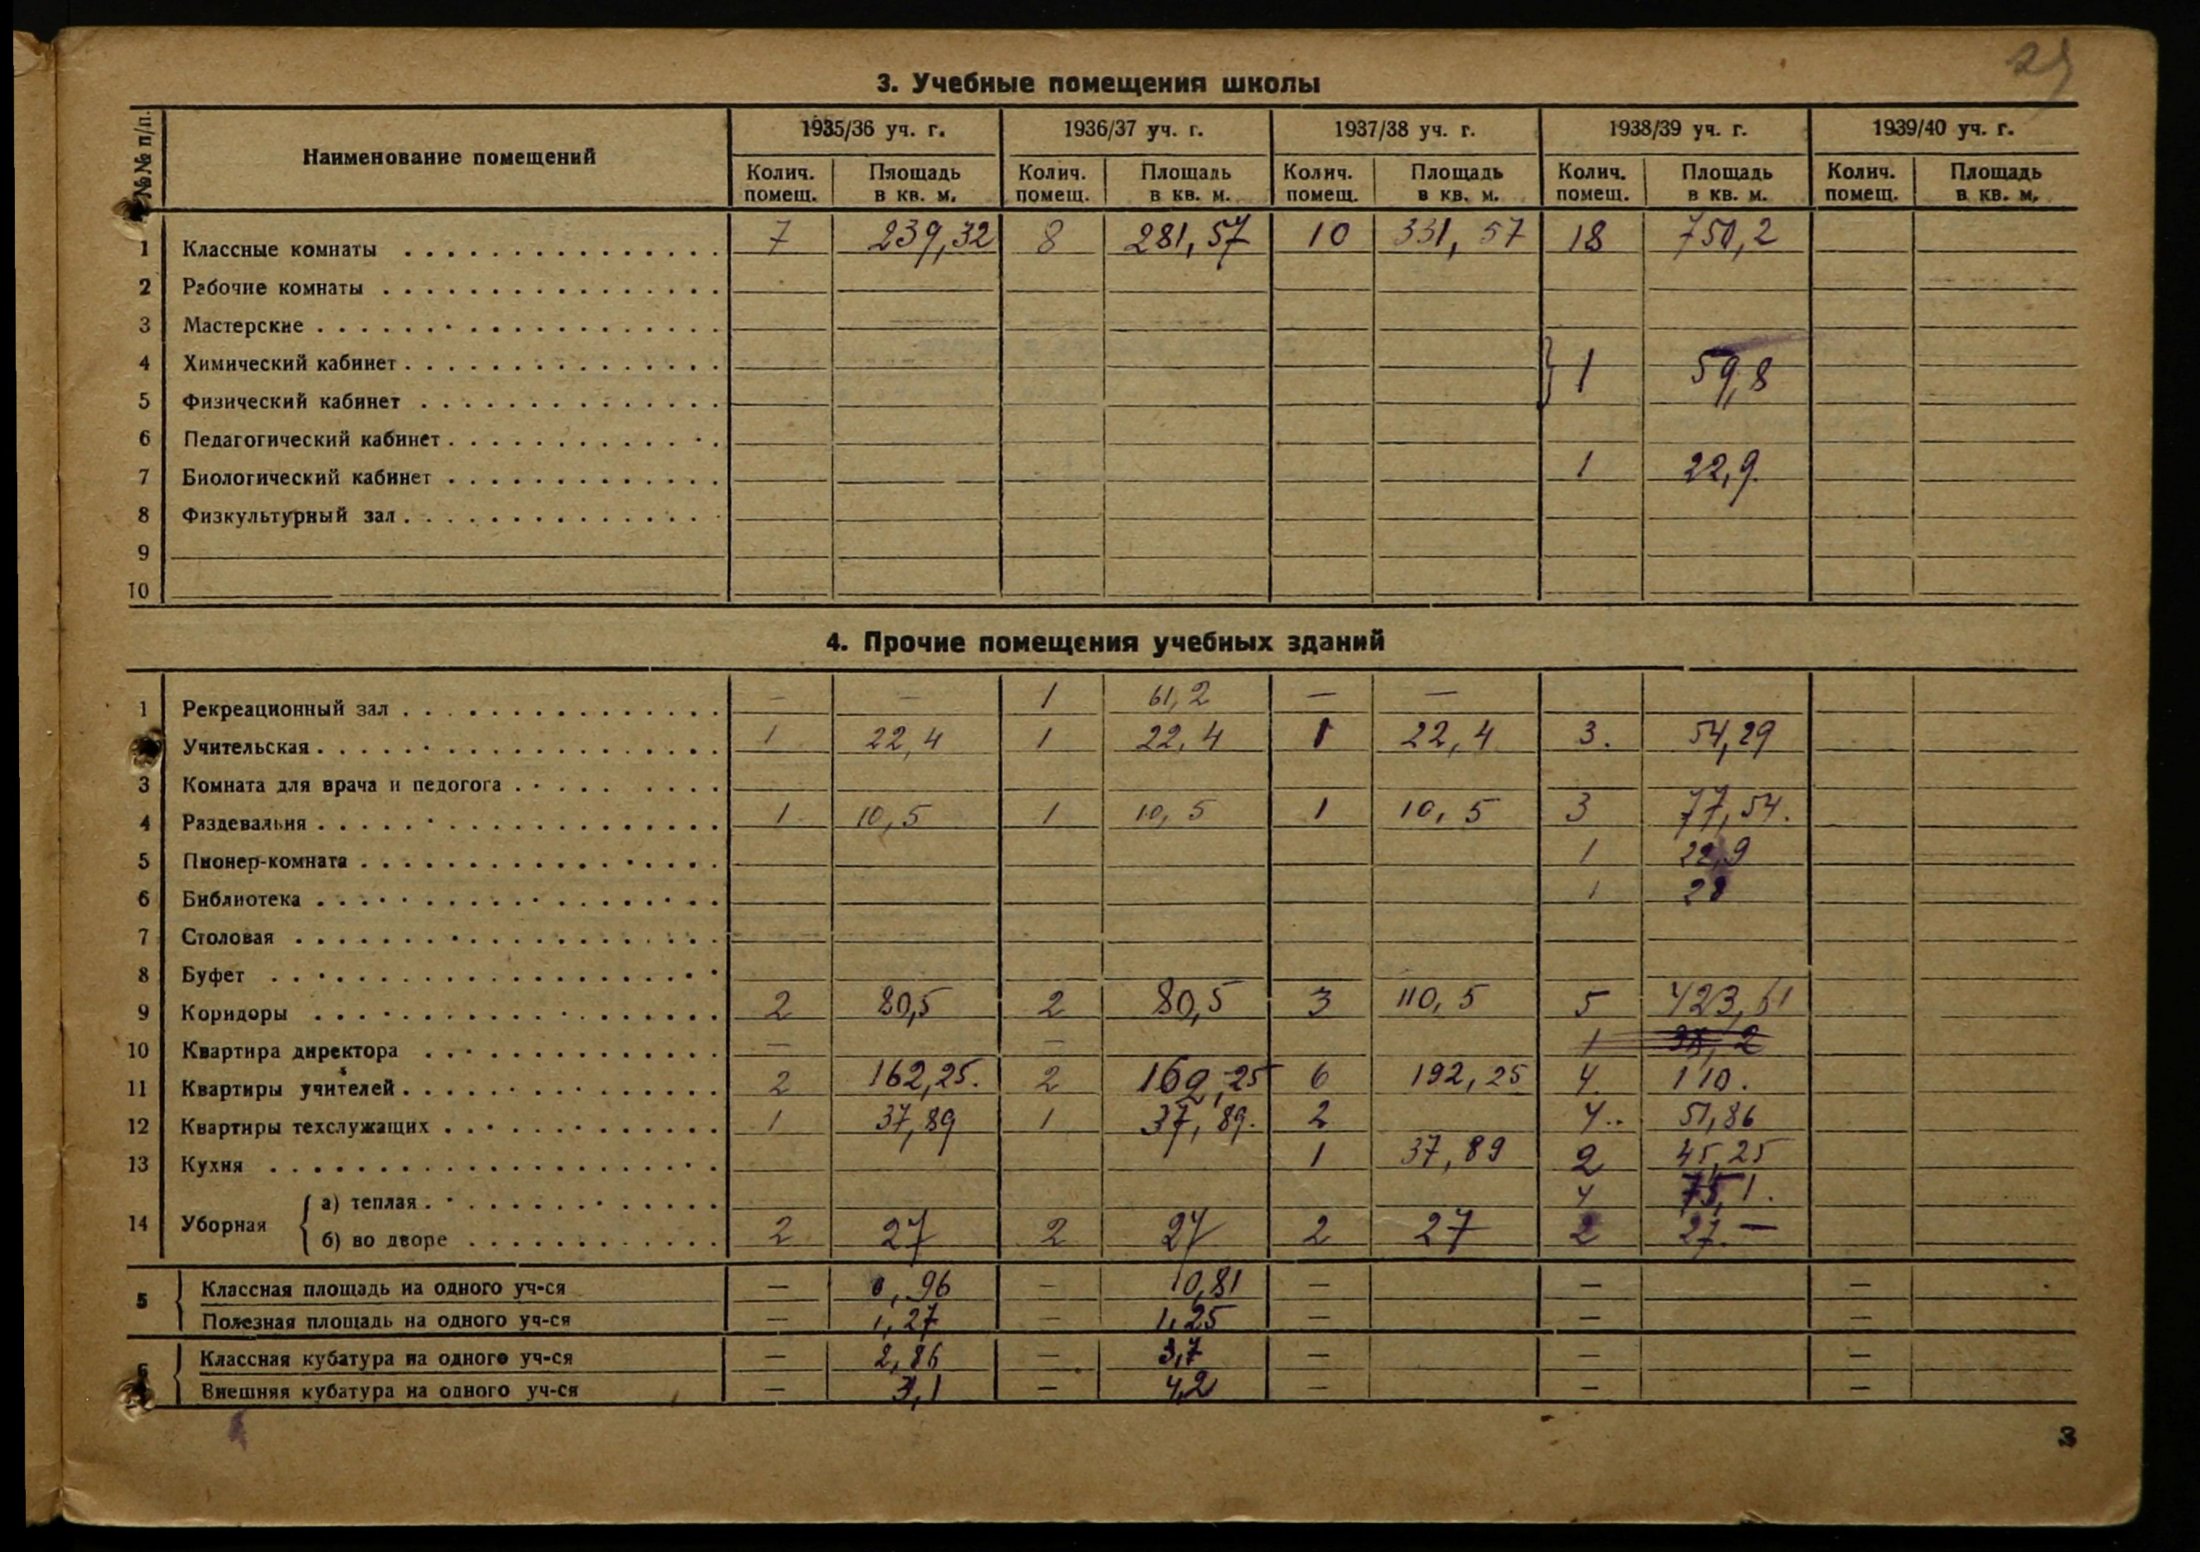 25
3. Учебные помещения школы
№№ п/п. Наименование помещений 1935/36 уч. г. 1936/37 уч. г. 1937/38 уч. г. 1938/39 уч. г. 1939/40 уч. г.
Колич. помещ. Площадь в кв. м. Колич. помещ. Площадь в кв. м. Колич. помещ. Площадь в кв. м. Колич. помещ. Площадь в кв. м. Колич. помещ. Площадь в кв. м.
1 Классные комнаты 7 239,32 8 281,57 10 331,57 18 750,2
2 Рабочие комнаты
3 Мастерские
4 Химический кабинет 1 59,8
5 Физический кабинет
6 Педагогический кабинет
7 Биологический кабинет 1 22,9
8 Физкультурный зал
9
10
4. Прочие помещения учебных зданий
1 Рекреационный зал — — 1 61,2 — —
Учительская 1 22,4 1 22,4 1 22,4 3. 54,29
3 Комната для врача и педогога
4 Раздевальня 1 10,5 1 10,5 1 10,5 3 77,54.
5 Пионер-комната 1 22,9
6 Библиотека 1 28
7 Столовая
8 Буфет
9 Коридоры 2 80,5 2 80,5 3 110,5 5 423,61
10 Квартира директора — — 1
11 Квартиры учителей 2 162,25. 2 162,25 6 192,25 4 110.
12 Квартиры техслужащих 1 37,89 1 37,89. 2 4.. 51,86
13 Кухня 1 37,89 2 45,25
14 Уборная а) теплая 4 75,1.
б) во дворе 2 27 2 27 2 27 2 27.—
5 Классная площадь на одного уч-ся — 0,96 — 0,81 — — —
Полезная площадь на одного уч-ся — 1,27 — 1,25 — — —
6 Классная кубатура на одного уч-ся — 2,86 — 3,7 — — —
Внешняя кубатура на одного уч-ся — 3,1 — 4,2 — — —
3